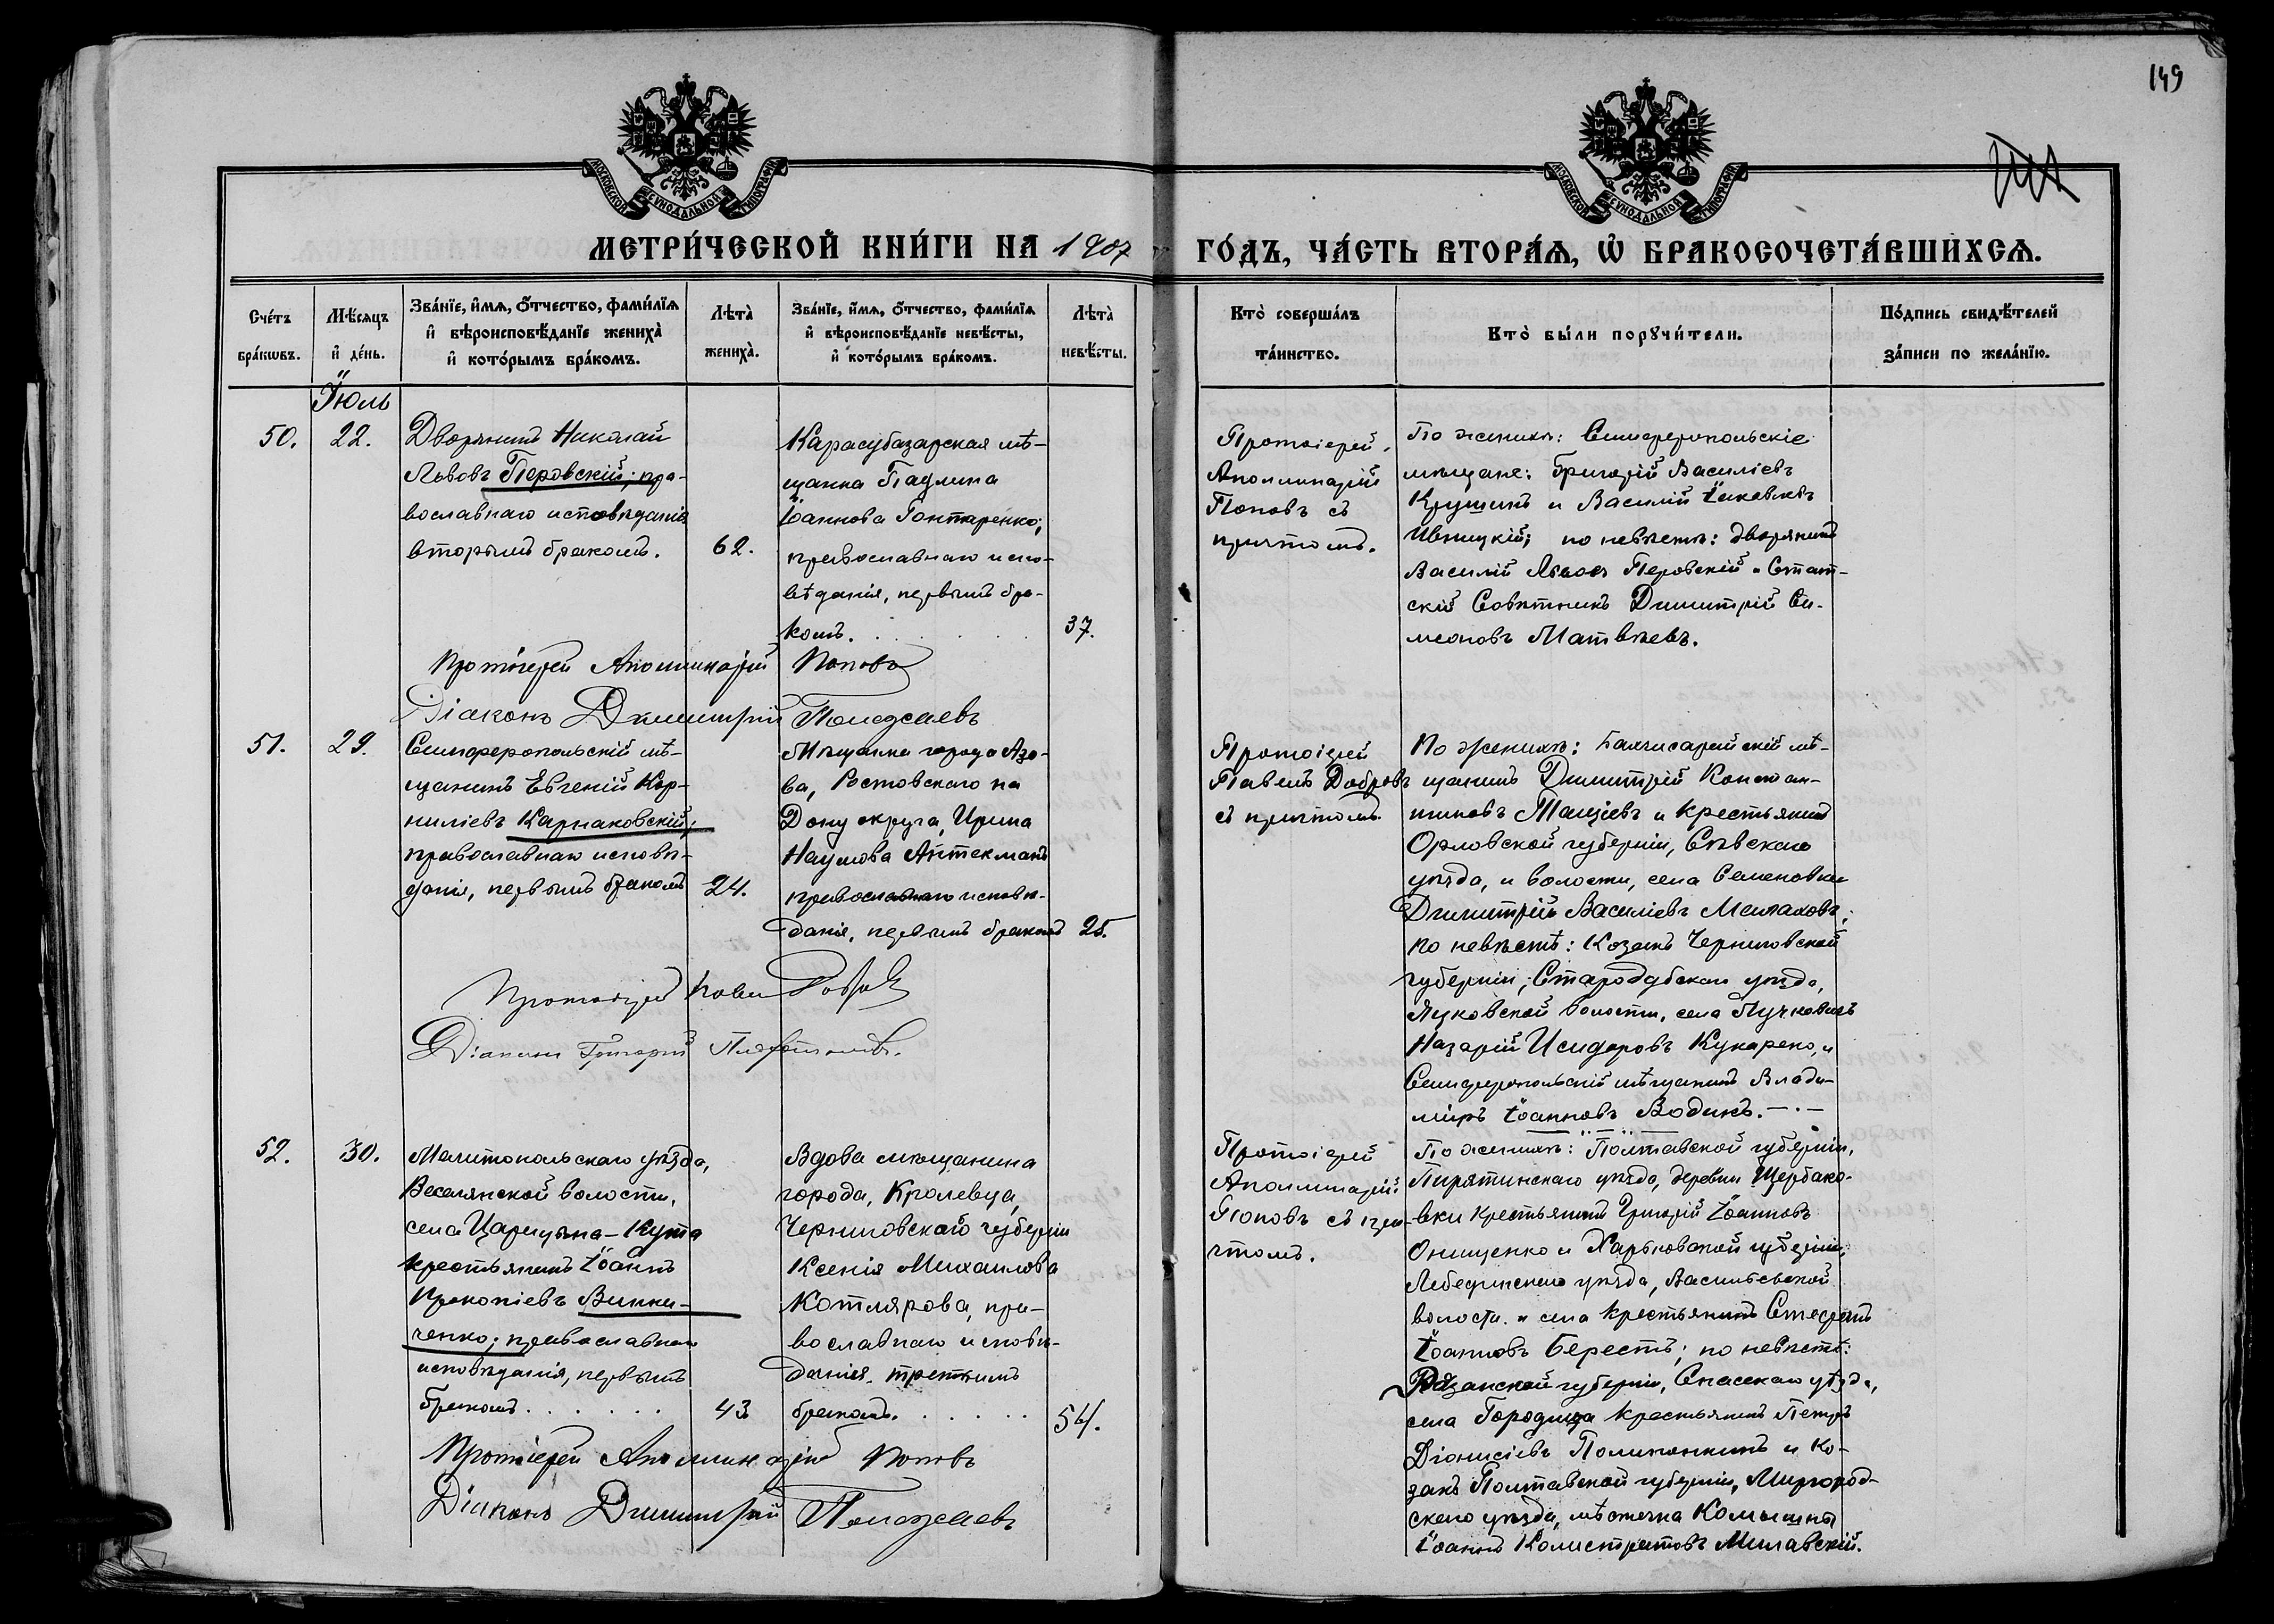 149
МОСКОВСКОЙ СѴНОДАЛЬНОЙ ТИПОГРАФІИ
МОСКОВСКОЙ СѴНОДАЛЬНОЙ ТИПОГРАФІИ
МЕТРИ́ЧЕСКОЙ КНИ́ГИ НА 1907 ГО́ДЪ, ЧА́СТЬ ВТОРА́Ѧ, Ѽ БРАКОСОЧЕТА́ВШИХСѦ.
Сче́тъ
бра́кѡвъ.
Мѣ́сяцъ
и҆ де́нь.
Зва́нїе, и҆́мѧ, ѻ҆́тчество, фами́лїѧ
и҆ вѣроисповѣ́данїе жениха̀
и҆ кото́рымъ бра́комъ.
Лѣта̀
жениха̀.
Зва́нїе, и҆́мѧ, ѻ҆́тчество, фами́лїѧ
и҆ вѣроисповѣ́данїе невѣ́сты,
и҆ кото́рымъ бра́комъ.
Лѣта̀
невѣ́сты.
Кто̀ соверша́лъ
та́инство.
Кто̀ бы́ли порꙋчи́тели.
По́дпись свидѣ́телей
за́писи по жела́нїю.
Іюль
50.
22.
Дворянинъ Николай
Львовъ Перовскій; пра-
вославнаго исповѣданія
вторымъ бракомъ.
62.
Карасубазарская мѣ-
щанка Паулина
Іоаннова Гонтаренко;
православнаго испо-
вѣданія, первымъ бра-
комъ.
37.
Протоіерей
Аполлинарій
Поповъ съ
причтомъ.
По женихѣ: Симферопольскіе
мѣщане: Григорій Василіевъ
Крушинъ и Василій Іаковлевъ
Ивницкій; по невѣстѣ: дворянинъ
Василій Львовъ Перовскій и Стат-
скій Совѣтникъ Димитрій Си-
меоновъ Матвѣевъ.
Протоіерей Аполлинарій Поповъ
Діаконъ Димитрій Полежаевъ
51.
29.
Симферопольскій мѣ-
щанинъ Евгеній Кор-
ниліевъ Карнаковскій;
православнаго исповѣ-
данія, первымъ бракомъ
24.
Мѣщанка города Азо-
ва, Ростовскаго на
Дону округа, Ирина
Наумова Аптекманъ
православнаго исповѣ-
данія, первымъ бракомъ
25.
Протоіерей
Павелъ Добровъ
съ причтомъ.
По женихѣ: Бахчисарайскій мѣ-
щанинъ Димитрій Констан-
тиновъ Тащіевъ и крестьянинъ
Орловской губерніи, Сѣвскаго
уѣзда, и волости, села Семеновки
Димитрій Василіевъ Малаховъ;
по невѣстѣ: Козакъ Черниговской
губерніи, Стародубскаго уѣзда,
волости, села
Назарій Исидоровъ Кукарено, и
Симферопольскій мѣщанинъ Влади-
міръ Іоанновъ Водикъ.
Протоіерей Павелъ Добровъ
Діаконъ Григорій
52.
30.
Мелитопольскаго уѣзда,
Веселянской волости,
села Царицына-Кута
крестьянинъ Іоаннъ
Прокопіевъ Винни-
ченко; православнаго
исповѣданія, первымъ
бракомъ
43
Вдова мѣщанина
города, Кролевца,
Черниговской губерніи
Ксенія Михаилова
Котлярова, пра-
вославнаго исповѣ-
данія, третьимъ
бракомъ.
54.
Протоіерей
Аполлинарій
Поповъ съ при-
чтомъ.
По женихѣ: Полтавской губерніи,
Пирятинскаго уѣзда, деревни Щербако-
вки крестьянинъ Григорій Іоанновъ
Онищенко и Харьковской губерніи,
Лебединскаго уѣзда, Васильевской
волости и села крестьянинъ Стефанъ
Іоанновъ Берестъ; по невѣстѣ:
Рязанской губерніи, Спасскаго уѣзда,
села Городища крестьянинъ Петръ
Діонисіевъ Полинонкинъ и ко-
закъ Полтавской губерніи, Миргород-
скаго уѣзда, мѣстечка Комышны
Іоаннъ Калистратовъ Милавскій.
Протоіерей Аполлинарій Поповъ
Діаконъ Димитрій Полежаевъ